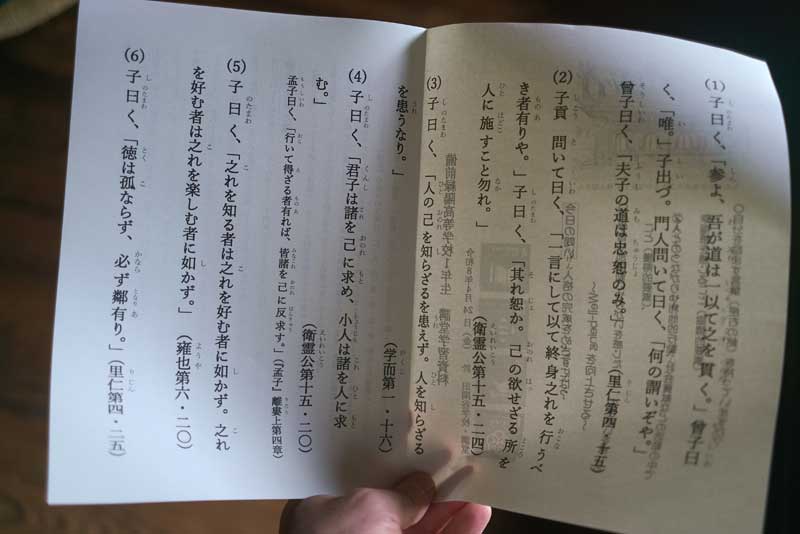 (1)子曰く、「参よ、吾が道は一以て之を貫く。」曾子曰
く、「唯。」子出づ。門人問いて曰く、「何の謂いぞや。」
曾子曰く、「夫子の道は忠恕のみ。」(里仁第四・十五)
(2)子貢 問いて曰く、「一言にして以て終身之れを行うべ
き者有りや。」子曰く、「其れ恕か。己の欲せざる所を
人に施すこと勿れ。」(衛霊公第十五・二四)
令和8年4月24日(金)
備前緑陽高等学校1年生 講堂学習資料
(3)子曰く、「人の己を知らざるを患えず。人を知らざる
を患うなり。」(学而第一・十六)
(4)子曰く、「君子は諸を己に求め、小人は諸を人に求
む。」(衛霊公第十五・二〇)
孟子曰く、「行いて得ざる者有れば、皆諸を己に反求す。」(『孟子』離婁上第四章)
(5)子曰く、「之れを知る者は之れを好む者に如かず。之れ
を好む者は之れを楽しむ者に如かず。」(雍也第六・二〇)
(6)子曰く、「徳は孤ならず、必ず鄰有り。」(里仁第四・二五)